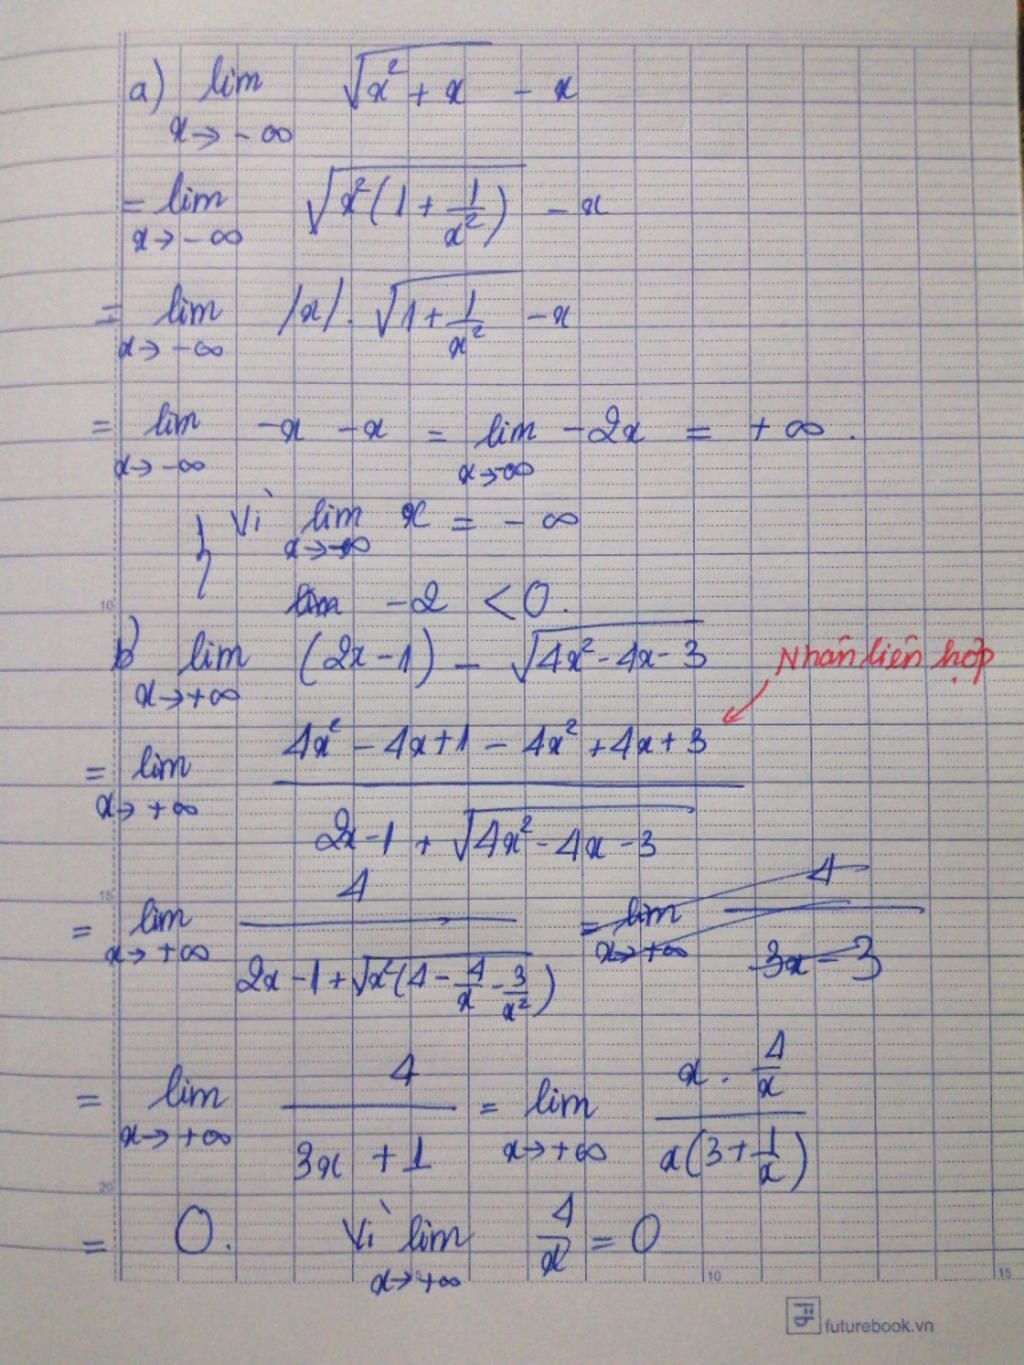 a) lim x→-∞ √(x² + x) - x
= lim x→-∞ √(x²(1 + 1/x²)) - x
= lim x→-∞ |x| . √(1 + 1/x²) - x
= lim x→-∞ -x - x = lim x→-∞ -2x = +∞.
Vì lim x→-∞ x = -∞
lim -2 < 0.
b) lim x→+∞ (2x - 1) - √(4x² - 4x - 3)
Nhân liên hợp
= lim x→+∞ (4x² - 4x + 1 - 4x² + 4x + 3)/(2x - 1 + √(4x² - 4x - 3))
= lim x→+∞ 4/(2x - 1 + √(x²(4 - 4/x - 3/x²))) = lim x→+∞ 4/(3x - 3)
= lim x→+∞ 4/(3x + 1) = lim x→+∞ (x . 4/x)/(x(3 + 1/x))
= 0. Vì lim x→+∞ 4/x = 0
10
15
20
5
10
15
futurebook.vn